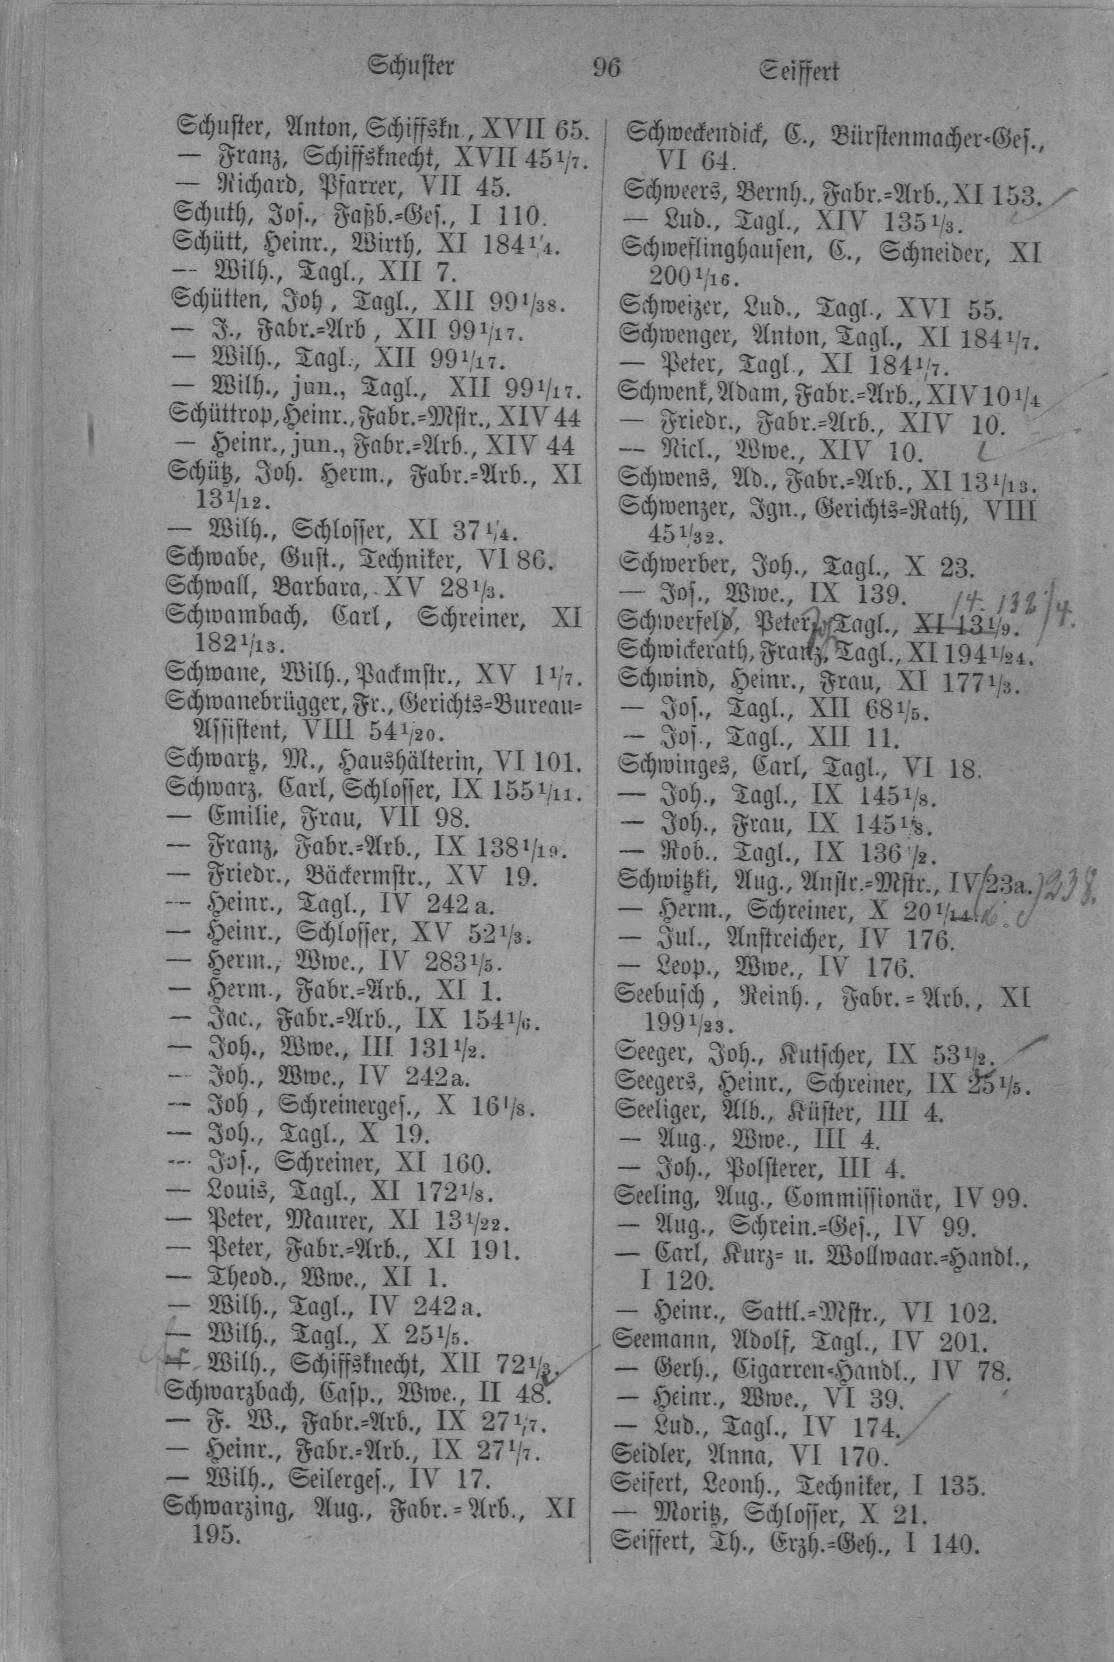 Schuster 96 Seiffert
Schuster, Anton, Schiffskn., XVII 65.
— Franz, Schiffsknecht, XVII 45 1/7.
— Richard, Pfarrer, VII 45.
Schuth, Jos., Faßb.=Ges., I 110.
Schütt, Heinr., Wirth, XI 184 1/4.
— Wilh., Tagl., XII 7.
Schütten, Joh, Tagl., XII 99 1/38.
— J., Fabr.=Arb, XII 99 1/17.
— Wilh., Tagl., XII 99 1/17.
— Wilh., jun., Tagl., XII 99 1/17.
Schüttrop, Heinr., Fabr.=Mstr., XIV 44
— Heinr., jun., Fabr.=Arb., XIV 44
Schütz, Joh. Herm., Fabr.=Arb., XI
13 1/12.
— Wilh., Schlosser, XI 37 1/4.
Schwabe, Gust., Techniker, VI 86.
Schwall, Barbara, XV 28 1/3.
Schwambach, Carl, Schreiner, XI
182 1/13.
Schwane, Wilh., Packmstr., XV 1 1/7.
Schwanebrügger, Fr., Gerichts=Bureau=
Assistent, VIII 54 1/20.
Schwartz, M., Haushälterin, VI 101.
Schwarz, Carl, Schlosser, IX 155 1/11.
— Emilie, Frau, VII 98.
— Franz, Fabr.=Arb., IX 138 1/19.
— Friedr., Bäckermstr., XV 19.
— Heinr., Tagl., IV 242 a.
— Heinr., Schlosser, XV 52 1/3.
— Herm., Wwe., IV 283 1/5.
— Herm., Fabr.=Arb., XI 1.
— Jac., Fabr.=Arb., IX 154 1/6.
— Joh., Wwe., III 131 1/2.
— Joh., Wwe., IV 242a.
— Joh, Schreinerges., X 16 1/8.
— Joh., Tagl., X 19.
— Jos., Schreiner, XI 160.
— Louis, Tagl., XI 172 1/8.
— Peter, Maurer, XI 13 1/22.
— Peter, Fabr.=Arb., XI 191.
— Theod., Wwe., XI 1.
— Wilh., Tagl., IV 242 a.
— Wilh., Tagl., X 25 1/5.
— Wilh., Schiffsknecht, XII 72 1/3.
Schwarzbach, Casp., Wwe., II 48.
— F. W., Fabr.=Arb., IX 27 1/7.
— Heinr., Fabr.=Arb., IX 27 1/7.
— Wilh., Seilerges., IV 17.
Schwarzing, Aug., Fabr.=Arb., XI
195.
Schweckendick, C., Bürstenmacher=Ges.,
VI 64.
Schweers, Bernh., Fabr.=Arb., XI 153.
— Lud., Tagl., XIV 135 1/3.
Schweflinghausen, C., Schneider, XI
200 1/16.
Schweizer, Lud., Tagl., XVI 55.
Schwenger, Anton, Tagl., XI 184 1/7.
— Peter, Tagl., XI 184 1/7.
Schwenk, Adam, Fabr.=Arb., XIV 10 1/4
— Friedr., Fabr.=Arb., XIV 10.
— Nicl., Wwe., XIV 10.
Schwens, Ad., Fabr.=Arb., XI 13 1/13.
Schwenzer, Ign., Gerichts=Rath, VIII
45 1/32.
Schwerber, Joh., Tagl., X 23.
— Jos., Wwe., IX 139.
14. 132 1/4.
Schwerfeld, Peter, Tagl., XI 13 1/9.
Schwickerath, Franz, Tagl., XI 194 1/24.
Schwind, Heinr., Frau, XI 177 1/3.
— Jos., Tagl., XII 68 1/5.
— Jos., Tagl., XII 11.
Schwinges, Carl, Tagl., VI 18.
— Joh., Tagl., IX 145 1/8.
— Joh., Frau, IX 145 1/8.
— Rob., Tagl., IX 136 1/2.
Schwitzki, Aug., Anstr.=Mstr., IV (23a.) 238.
— Herm., Schreiner, X 20 1/14.
— Jul., Anstreicher, IV 176.
— Leop., Wwe., IV 176.
Seebusch, Reinh., Fabr.=Arb., XI
199 1/23.
Seeger, Joh., Kutscher, IX 53 1/2.
Seegers, Heinr., Schreiner, IX 25 1/5.
Seeliger, Alb., Küster, III 4.
— Aug., Wwe., III 4.
— Joh., Polsterer, III 4.
Seeling, Aug., Commissionär, IV 99.
— Aug., Schrein.=Ges., IV 99.
— Carl, Kurz= u. Wollwaar.=Handl.,
I 120.
— Heinr., Sattl.=Mstr., VI 102.
Seemann, Adolf, Tagl., IV 201.
— Gerh., Cigarren=Handl., IV 78.
— Heinr., Wwe., VI 39.
— Lud., Tagl., IV 174.
Seidler, Anna, VI 170.
Seifert, Leonh., Techniker, I 135.
— Moritz, Schlosser, X 21.
Seiffert, Th., Erzh.=Geh., I 140.